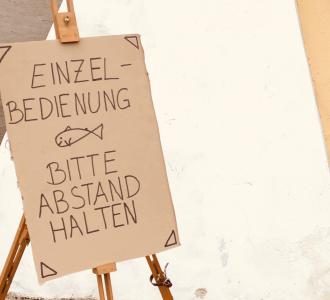 EINZEL-
BEDIENUNG
BITTE
ABSTAND
HALTEN